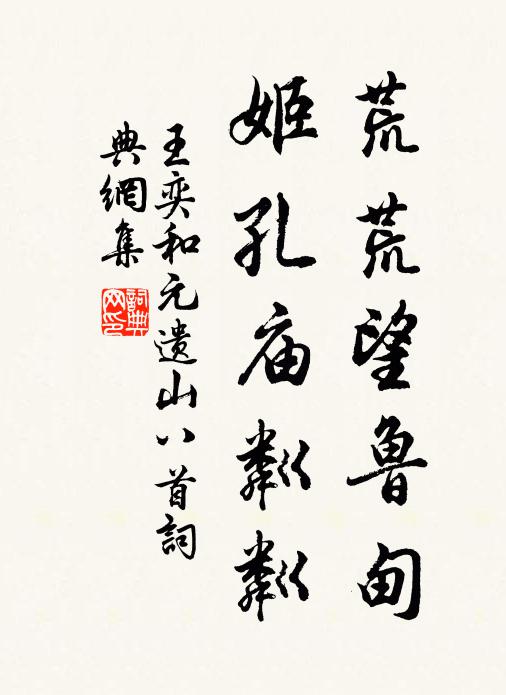 荒荒望鲁甸
姬孔庙粼粼
王奕和元遗山八首詞
典網集
詞典
网印